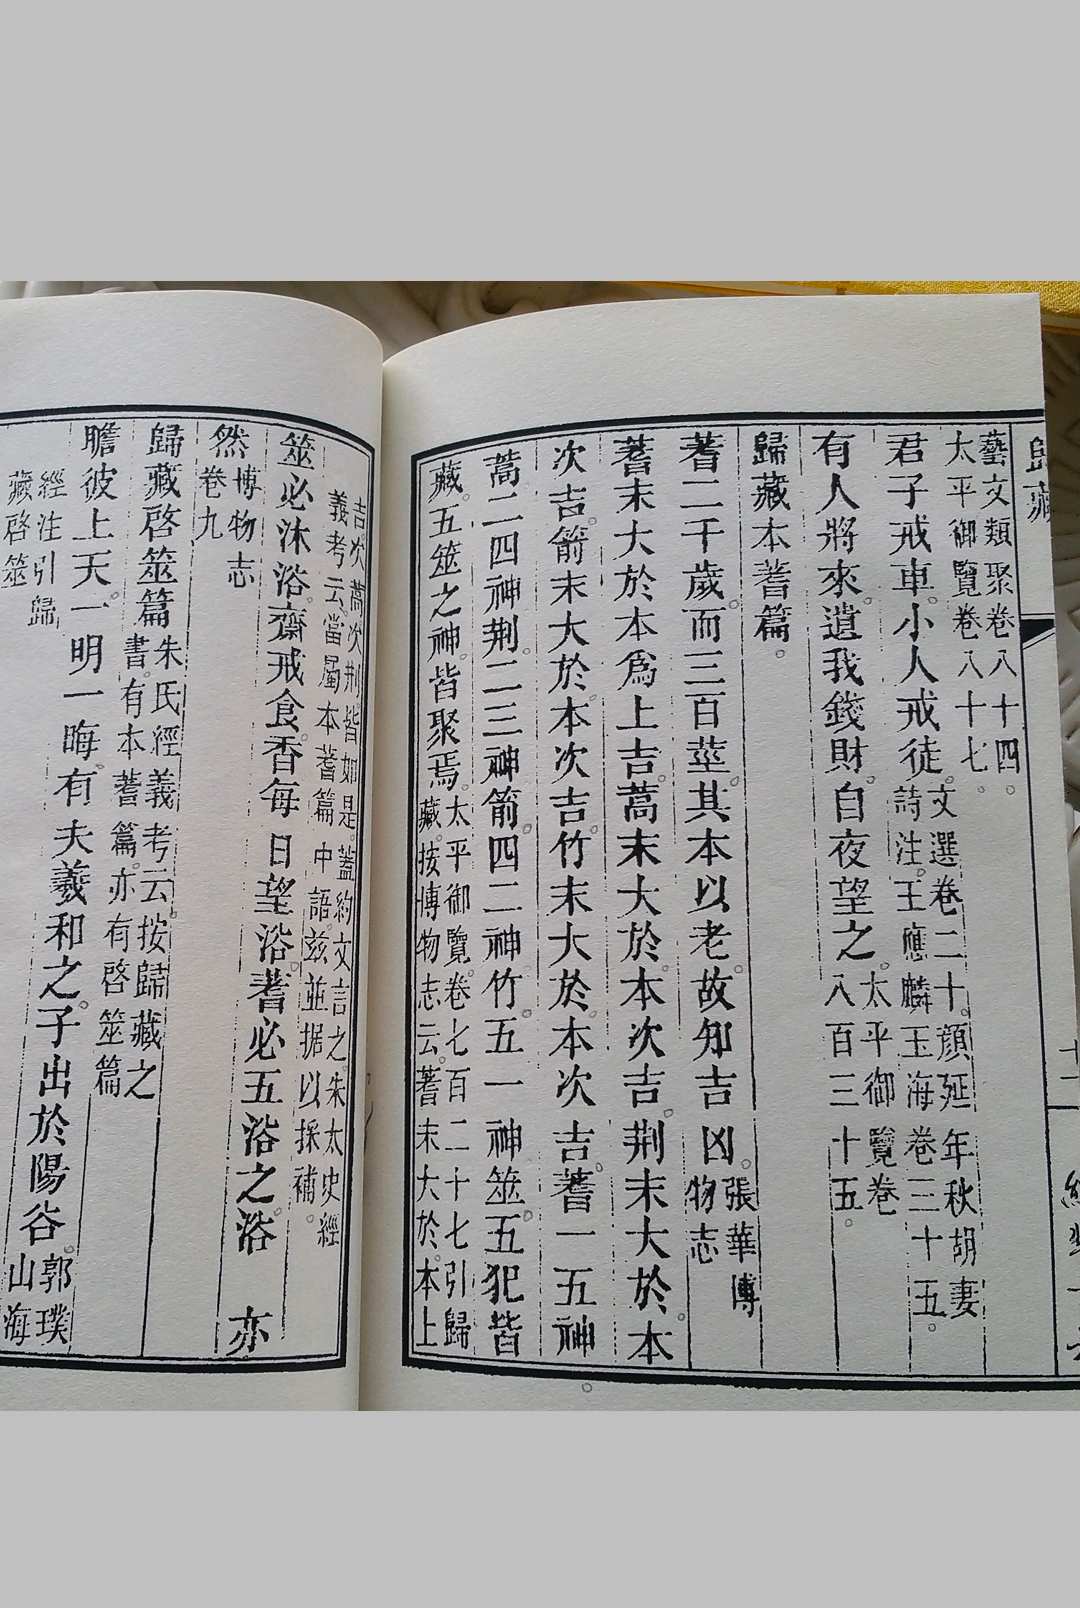 歸藏
藝文類聚卷八十四。
太平御覽卷八十七。
君子戒車。小人戒徒。文選卷二十。顔延年秋胡妻
詩注。王應麟玉海卷三十五。
有人將來。遺我錢財。自夜望之。太平御覽卷
八百三十五。
歸藏本蓍篇。
蓍二千歲而三百莖。其本以老。故知吉凶。張華博
物志
蓍末大於本爲上吉。蒿末大於本次吉。荆末大於本
次吉。箭末大於本次吉。竹末大於本次吉。蓍一五神
蒿二四神荆。二三神箭四二神竹五一神筮五犯皆
藏。五筮之神。皆聚焉。太平御覽卷七百二十七引歸
藏。按博物志云。蓍末大於本上
吉。次蒿。次荆。皆如是。蓋約文言之。朱太史經
義考云。當屬本蓍篇中語。兹並据以採補。
筮必沐浴。齋戒食香。每日望浴。蓍必五浴之。浴亦
然博物志
卷九
歸藏啓筮篇朱氏經義考云按歸藏之
書。有本蓍篇。亦有啓筮篇
瞻彼上天。一明一晦。有夫羲和之子。出於陽谷。郭璞
山海
經注引歸
藏啓筮